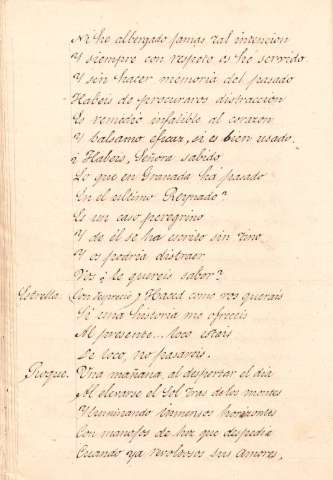 Ni he albergado jamas tal intencion
Y siempre con respeto os he servido
Y sin hacer memoria del pasado
Habeis de procuraros distraccion
Es remedio infalible al corazon
Y balsamo eficaz, si es bien usado.
¿Habeis, Señora sabido
Lo que en Granada há pasado
En el último Reynado?
Es un caso peregrino
Y de él se ha escrito sin tino
Y os podria distraer
Vos ¿le quereis saber?
Estrella. Con desprecio / Haced como vos querais
Si una historia me ofreceis
Al presente... loco estais
De loco, no pasareis.
Roque. Una mañana, al despertar el dia
Al elevarse el Sol tras de los montes
Yluminando inmensos horizontes
Con manojos de luz que despedia
Cuando ya revoltosos sus amores.